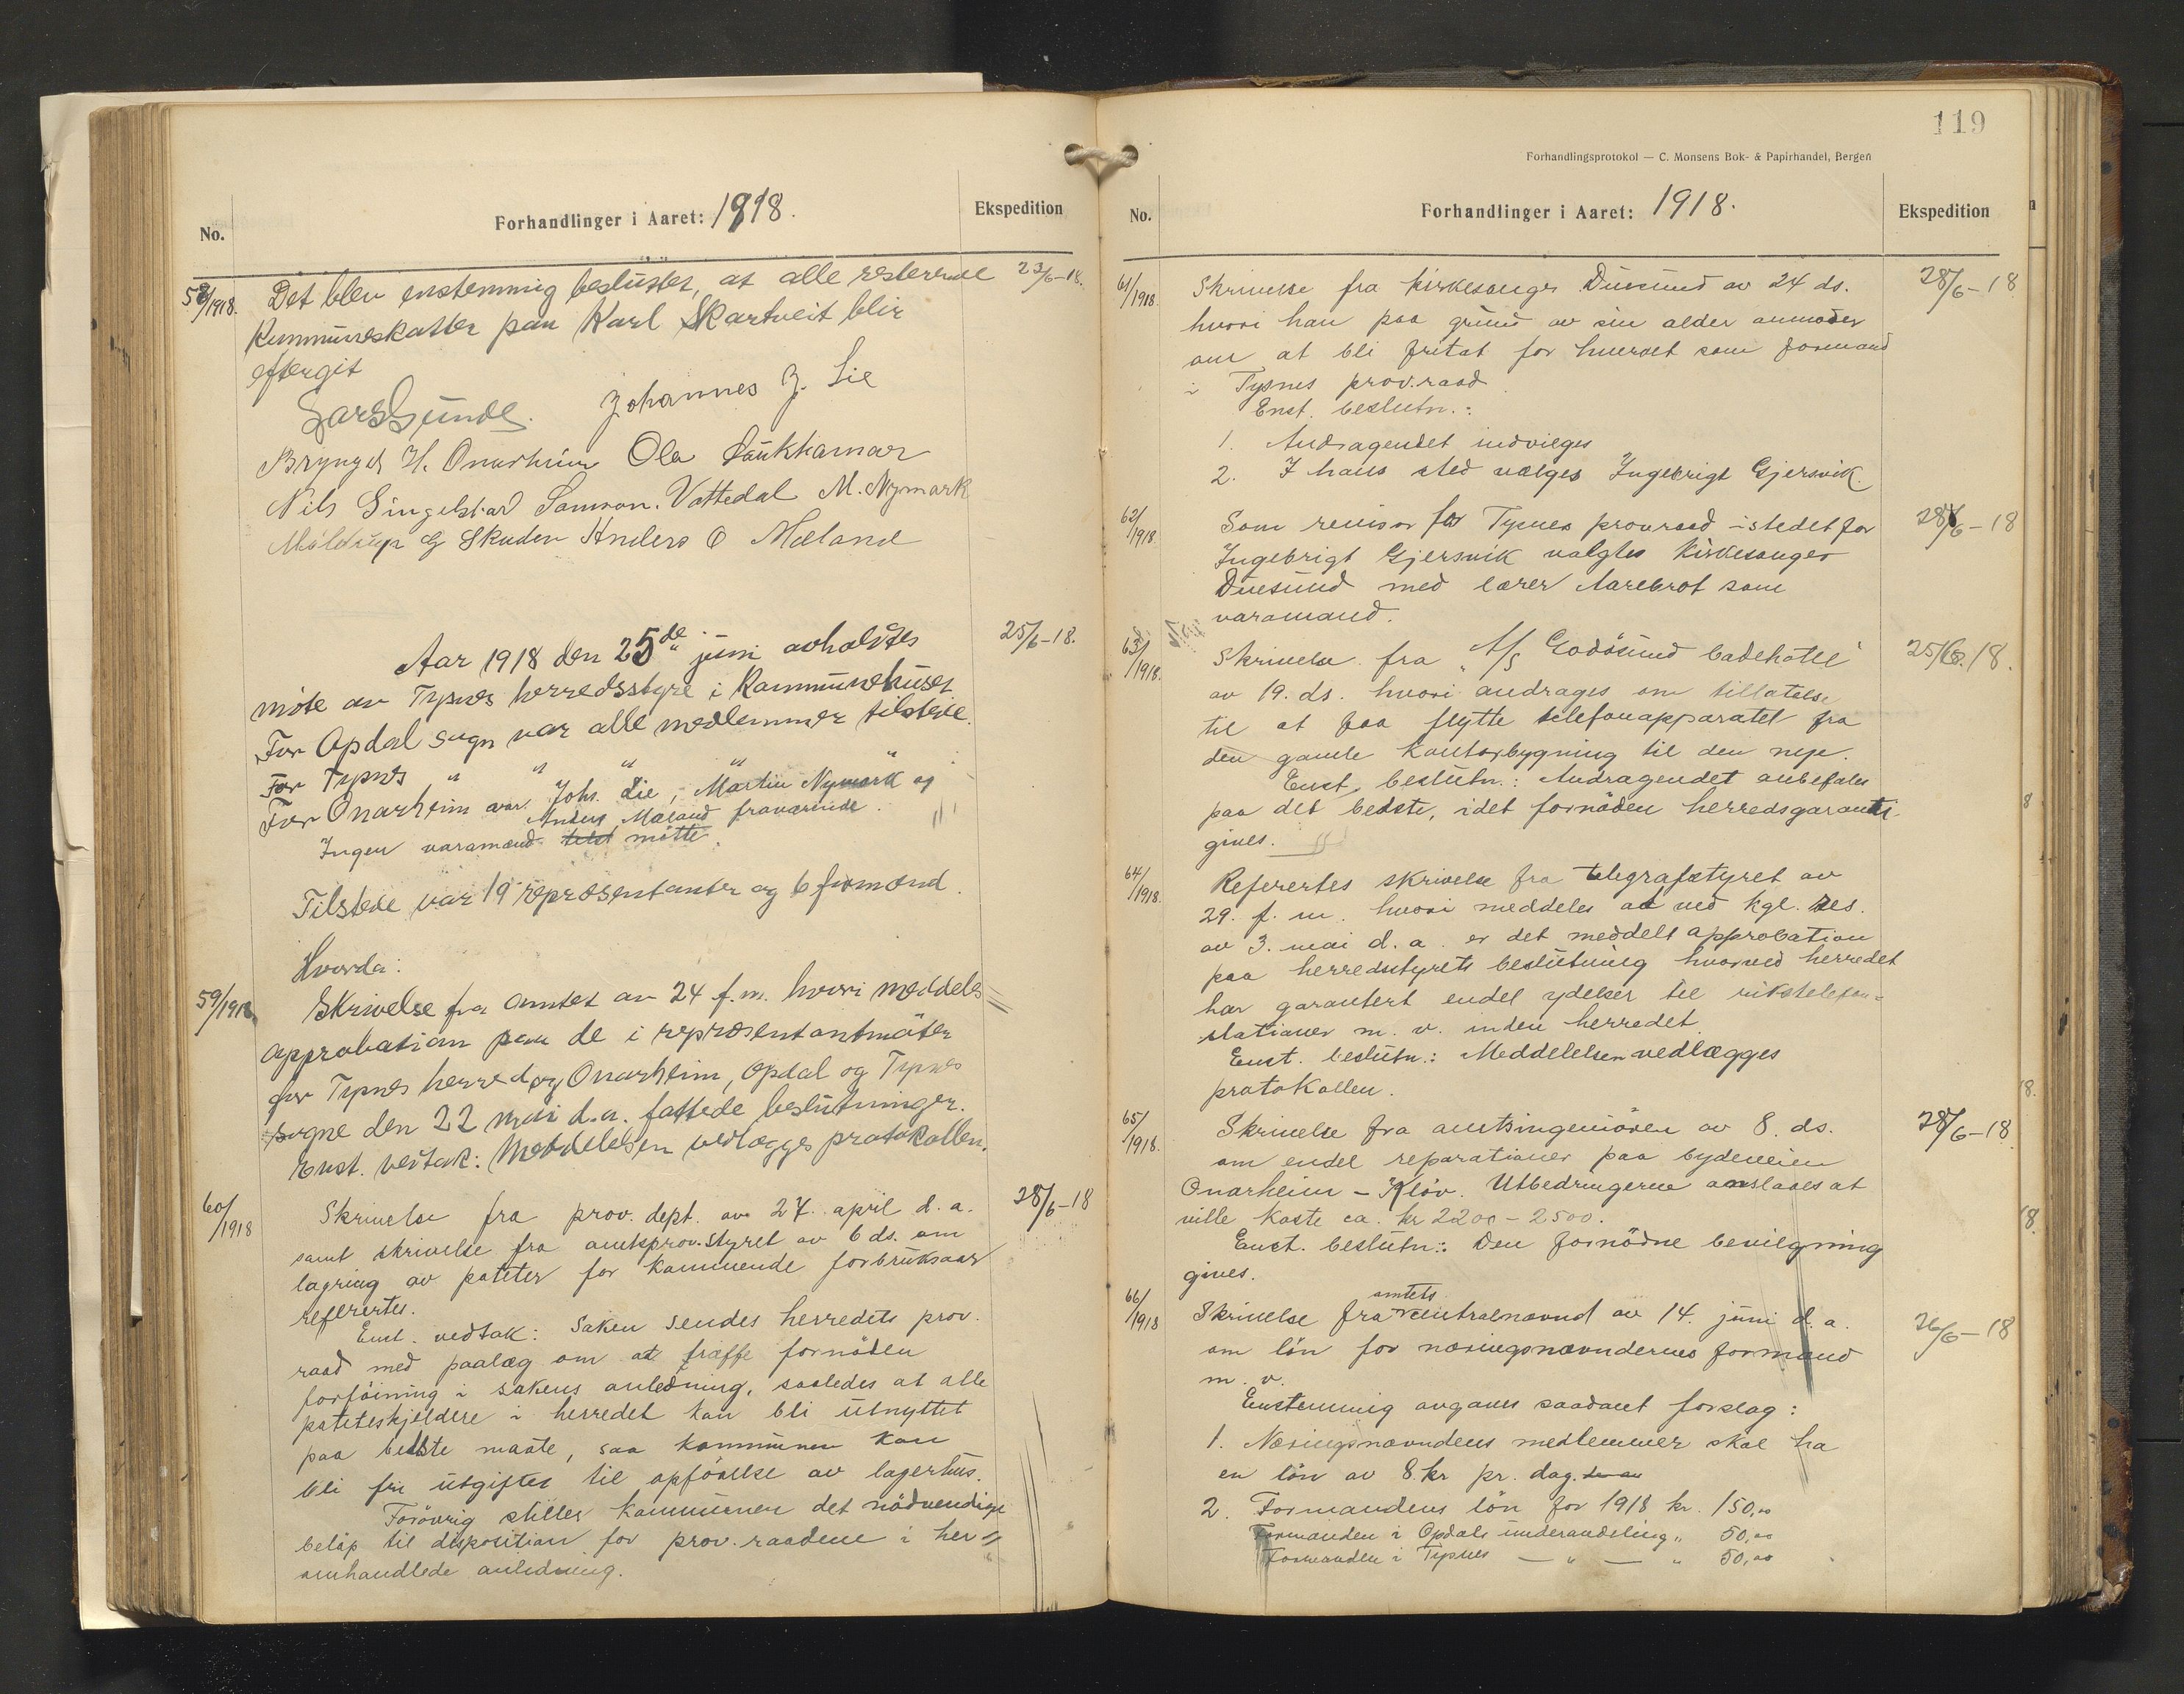 No.
Forhandlinger i Aaret: 1918.
Ekspedition
58/1918. Det blev enstemmig besluttet, at alle resterende 23/6-18.
Kommuneskatter paa Karl Skartveit blir
eftergit
Lars Sunde. Johannes J. Lie
Brynjel H. Onarheim Ola Laukhamar
Nils Singelstad Samson. Vattedal M. Nymark
Måldrup G Skuden Anders O Mæland
Aar 1918 den 25de juni avholdtes 25/6-18.
møte av Tysnes herredsstyre i Kommunehuset
For Opdal sogn var alle medlemmer tilstede.
For Tysnes " " " " "
For Onarheim var Johs. Lie, Martin Nymark og
Anders Mæland fraværende.
Ingen varamænd møtte.
Tilstede var 19 repræsentanter og 6 formænd.
Hvorda:
59/1918. Skrivelse fra amtet av 24 f.m. hvori meddeles
approbation paa de i repræsentantmøter
for Tysnes herred og Onarheim, Opdal og Tysnes
sogne den 22 mai d.a. fattede beslutninger.
Enst. vedtak: Meddelelsen vedlægges protokollen.
60/1918 Skrivelse fra prov. dept. av 27. april d. a. 28/6-18
samt skrivelse fra amtsprov. styret av 6 ds. om
lagring av poteter for kommende forbruksaar
refertes.
Enst. vedtak: Saken sendes herredets prov.
raad med paalæg om at træffe fornøden
forføining i sakens anledning, saaledes at alle
poteteskjeldere i herredet kan bli utnyttet
paa bedste maate, saa kommunen kan
bli fri utgifter til opførelse av lagerhus.
Forøvrig stilles kommunen det nødvendige
beløp til disposition for prov. raadene i her
omhandlede anledning.
119
Forhandlingsprotokol — C. Monsens Bok- & Papirhandel, Bergen
No.
Forhandlinger i Aaret: 1918.
Ekspedition
61/1918. Skrivelse fra kirkesanger Duesund av 24 ds. 28/6-18
hvori han paa grund av sin alder anmoder
om at bli fritat for hvervet som formand
i Tysnes prov.raad
Enst. beslutn.:
1. Andragendet indvilges
2. I hans sted vælges Ingebrigt Gjersvik.
62/1918 Som revisor for Tysnes provraad istedetfor 28/6-18
Ingebrigt Gjersvik valgtes Kirkesanger
Duesund med lærer Aarebrot som
varamand.
63/1918. Skrivelse fra "A/S Godøsund badehotel" 25/6.18.
av 19. ds. hvori andrages om tillatelse
til at faa flytte telefonapparatet fra
den gamle Kontorbygning til den nye.
Enst. beslutn.: Andragendet anbefales
paa det bedste, idet fornøden herredsgaranti
gives.
64/1918. Refererters skrivelse fra telegrafstyret av
29. f. m. hvori meddeles at ved kgl. Res.
av 3. mai d. a. er det meddelt approbation
paa herredsstyrets beslutning hvorved herredet
har garantert endel ydelser til rikstelefon-
stationer m. v. inden herredet.
Enst. beslutn.: Meddelelsen vedlægges
protokollen.
65/1918. Skrivelse fra amtsingeniøren av 8. ds. 28/6-18
om endel reparationer paa bydeveien
Onarheim - Kløv. Utbedringerne anslaaes at
ville koste ca. kr 2200 - 2500.
Enst. beslutn.: Den fornødne bevilgning
gives.
66/1918 Skrivelse fra amtets centralnævnd av 14. juni d. a. 26/6-18
om løn for næringsnævndernes formænd
m. v.
Enstemmig avgaves saadant forslag:
1. Næringsnævndens medlemmer skal ha
en løn av 8. kr pr. dag.
2. Formandens løn for 1918 kr. 150,00
Formanden i Opdals underavdeling " 50,00
Formanden i Tysnes — " — " 50,00